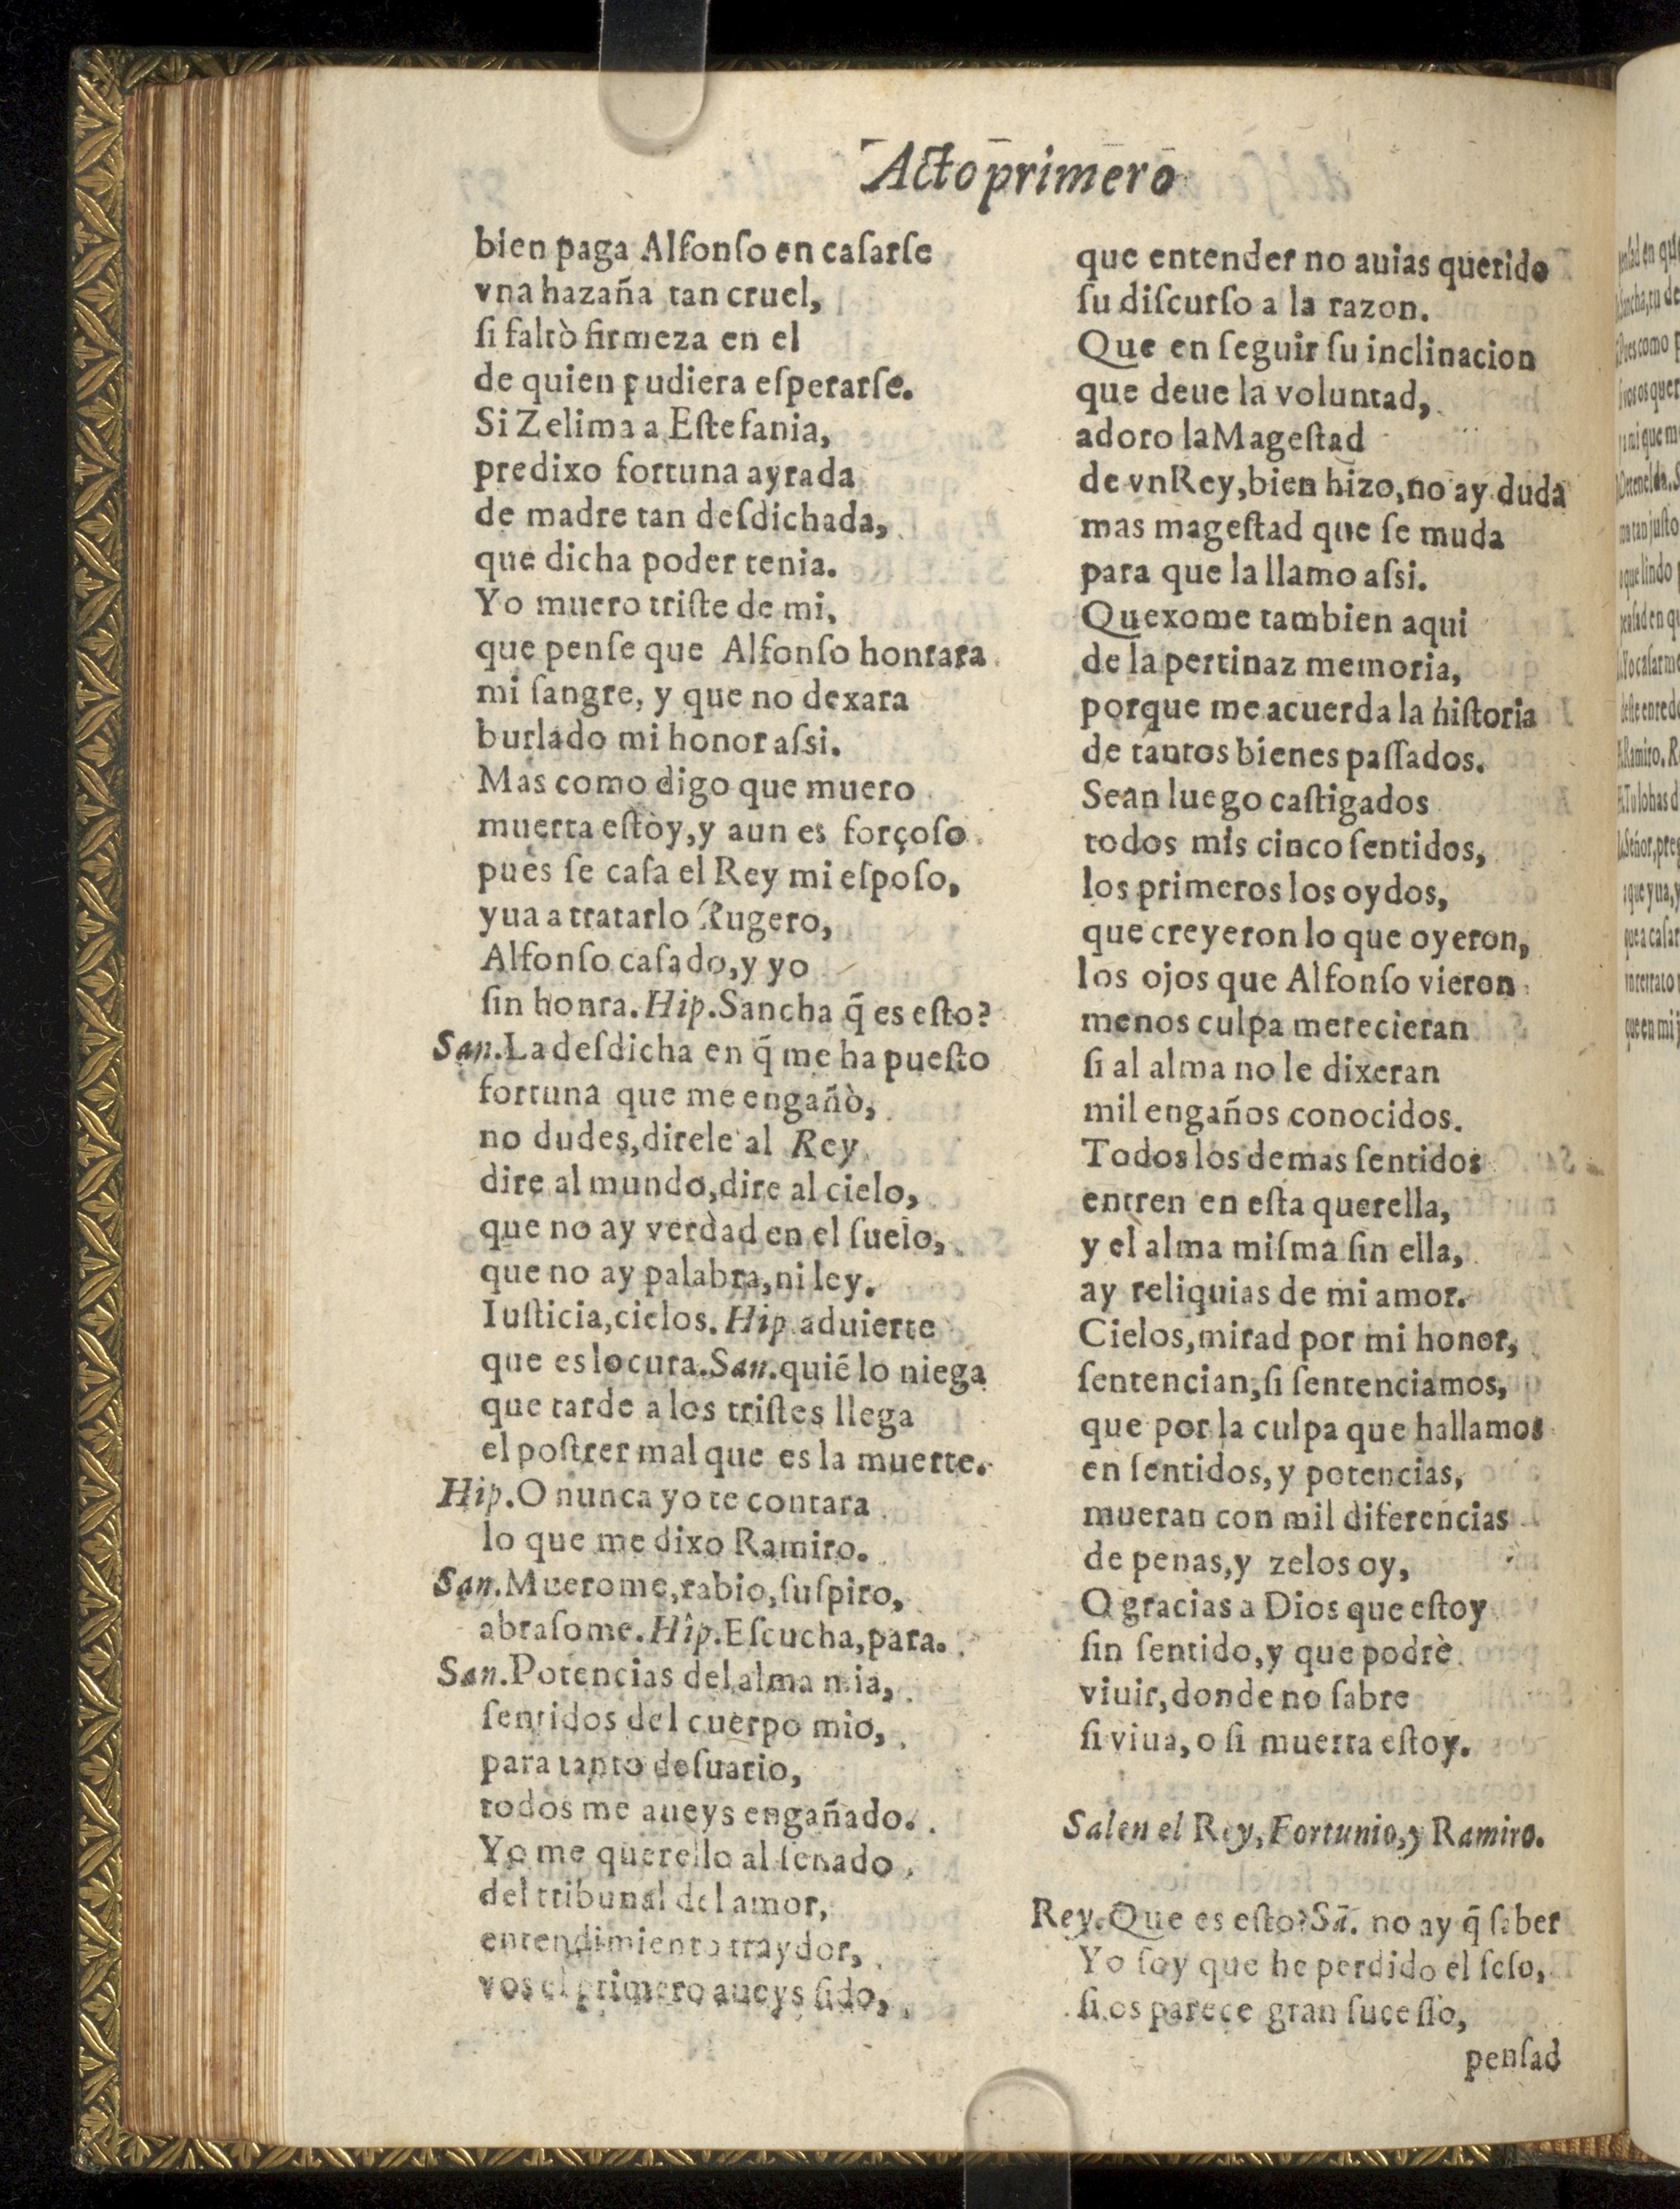 Acto primero
bien paga Alfonſo en caſarſe
vna hazaña tan cruel,
ſi faltò firmeza en el
de quien pudiera eſperarſe.
Si Zelima a Eſtefania,
predixo fortuna ayrada
de madre tan deſdichada,
que dicha poder tenia.
Yo muero triſte de mi,
que penſe que Alfonſo honrara
mi ſangre, y que no dexara
burlado mi honor aſsi.
Mas como digo que muero
muerta eſtoy, y aun es forçoſo
pues ſe caſa el Rey mi eſpoſo,
yua a tratarlo Rugero,
Alfonſo caſado, y yo
ſin honra. Hip. Sancha q̃ es eſto?
San. La deſdicha en q̃ me ha pueſto
fortuna que me engañò,
no dudes, direle al Rey
dire al mundo, dire al cielo,
que no ay verdad en el ſuelo,
que no ay palabra, ni ley.
Iuſticia, cielos. Hip. aduierte
que es locura. San. quiẽ lo niega
que tarde a los triſtes llega
el poſtrer mal que es la muerte.
Hip. O nunca yo te contara
lo que me dixo Ramiro.
San. Muerome, rabio, ſuſpiro,
abraſome. Hip. Eſcucha, para.
San. Potencias del alma mia,
ſentidos del cuerpo mio,
para tanto deſuario,
todos me aueys engañado.
Yo me querello al ſenado
del tribunal del amor,
entendimiento traydor,
vos el primero aueys ſido,
que entender no auias querido
ſu diſcurſo a la razon.
Que en ſeguir ſu inclinacion
que deue la voluntad,
adoro la Mageſtad
de vn Rey, bien hizo, no ay duda
mas mageſtad que ſe muda
para que la llamo aſsi.
Quexome tambien aqui
de la pertinaz memoria,
porque me acuerda la hiſtoria
de tantos bienes paſſados.
Sean luego caſtigados
todos mis cinco ſentidos,
los primeros los oydos,
que creyeron lo que oyeron,
los ojos que Alfonſo vieron
menos culpa merecieran
ſi al alma no le dixeran
mil engaños conocidos.
Todos los demas ſentidos
entren en eſta querella,
y el alma miſma ſin ella,
ay reliquias de mi amor.
Cielos, mirad por mi honor,
ſentencian, ſi ſentenciamos,
que por la culpa que hallamos
en ſentidos, y potencias,
mueran con mil diferencias
de penas, y zelos oy,
O gracias a Dios que eſtoy
ſin ſentido, y que podrè
viuir, donde no ſabre
ſi viua, o ſi muerta eſtoy.
Salen el Rey, Fortunio, y Ramiro.
Rey. Que es eſto? Sã. no ay q̃ ſaber
Yo ſoy que he perdido el ſeſo,
ſi os parece gran ſuceſſo,
penſad